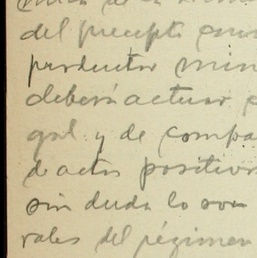 del precepto
productor
deberá actuar
gal y de compa
de actos positivos
sin duda lo son
rales del régimen